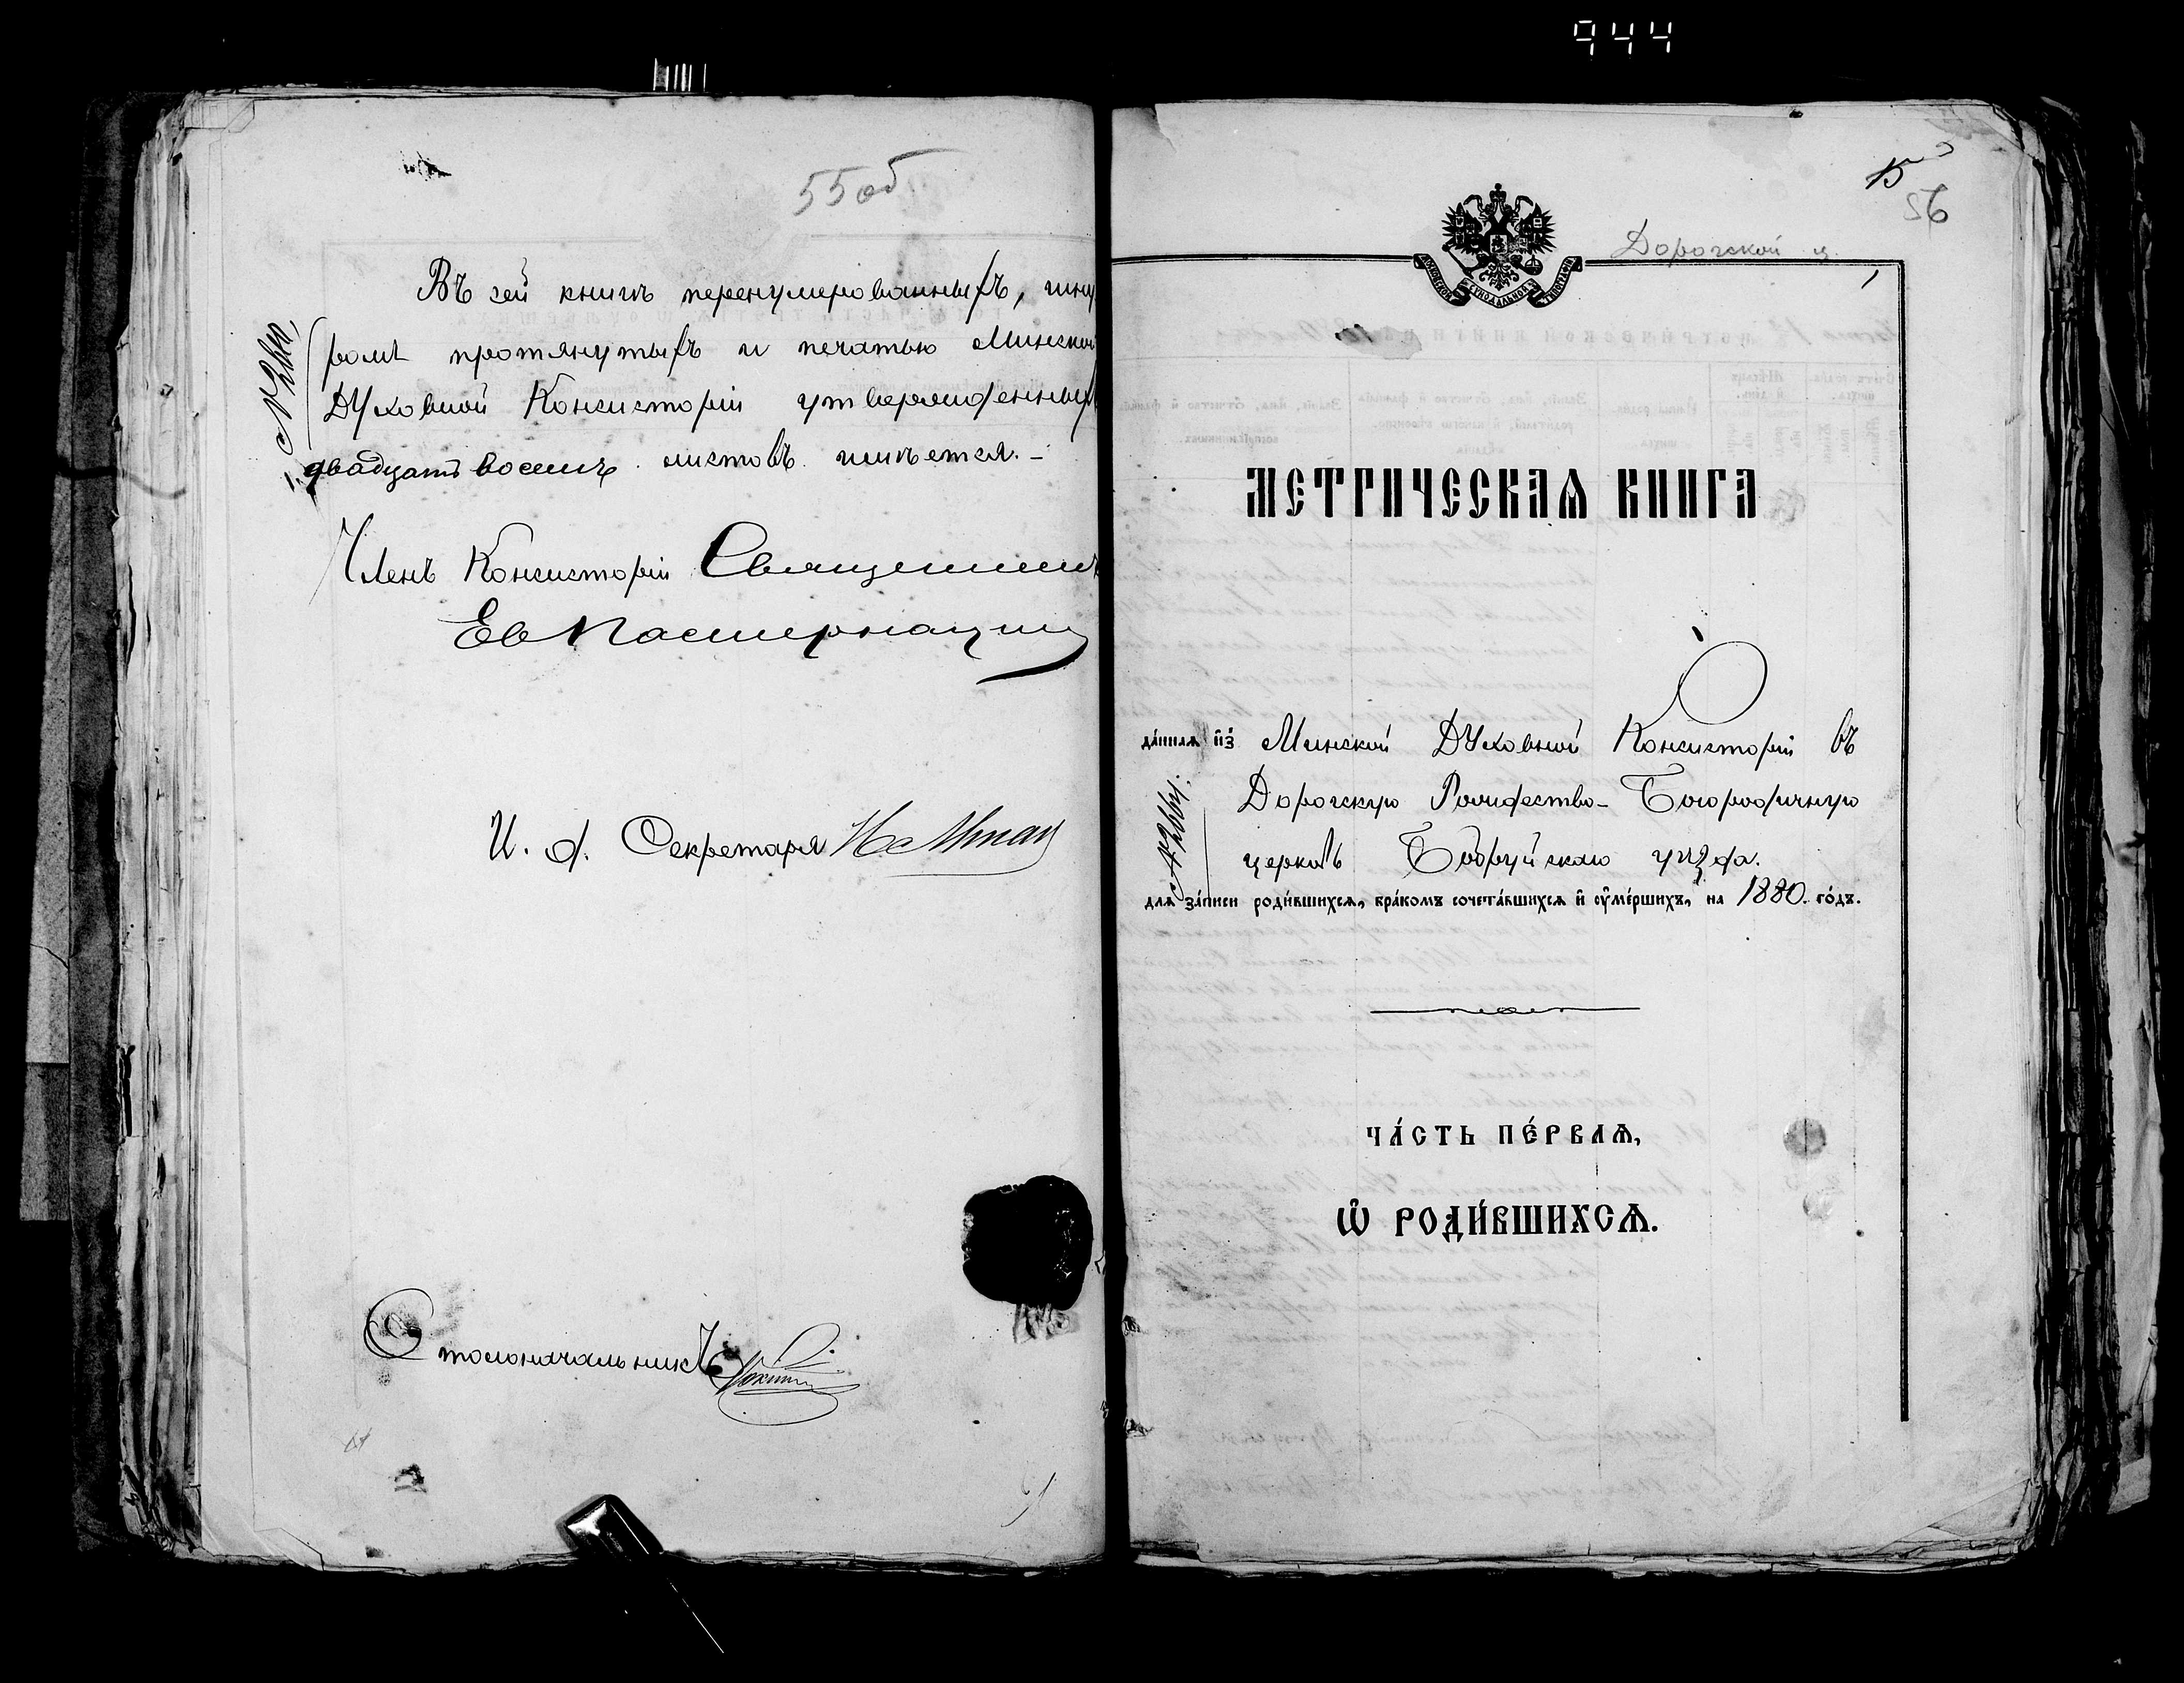 944
55 об
Въ сей книгѣ перенумерованныхъ, шну
ромъ протянутыхъ и печатью Минской
Духовной Консисторіи утвержденныхъ
двадцать восемь листовъ имѣется.-
Членъ Консисторіи Священникъ
И. д. Секретаря
Столоначальникъ
56
Дорогской ц.
1
МОСКОВСКОЙ СѴНОДАЛЬНОЙ ТИПОГРАФІИ
МЕТРИЧЕСКАѦ КНИГА
да́ннаѧ и҆з̾ Минской Духовной Консисторіи въ
Дорогскую Рождество-Богородичную
церковь Бобруйскаго уѣзда.
длѧ за́писи роди́вшихсѧ, бра́комъ сочета́вшихсѧ и҆ ᲂу҆ме́ршихъ, на 1880. го́дъ.
ЧА́СТЬ ПЕ́РВАѦ,
Ѽ РОДИ́ВШИХСѦ.